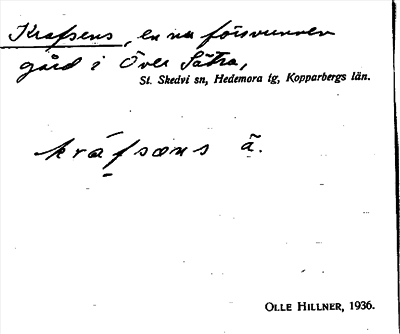 Krafsens, en nu försvunnen
gård i Över Sätra,
St. Skedvi sn, Hedemora tg, Kopparbergs län.
kráfsɷns ã.
OLLE HILLNER, 1936.